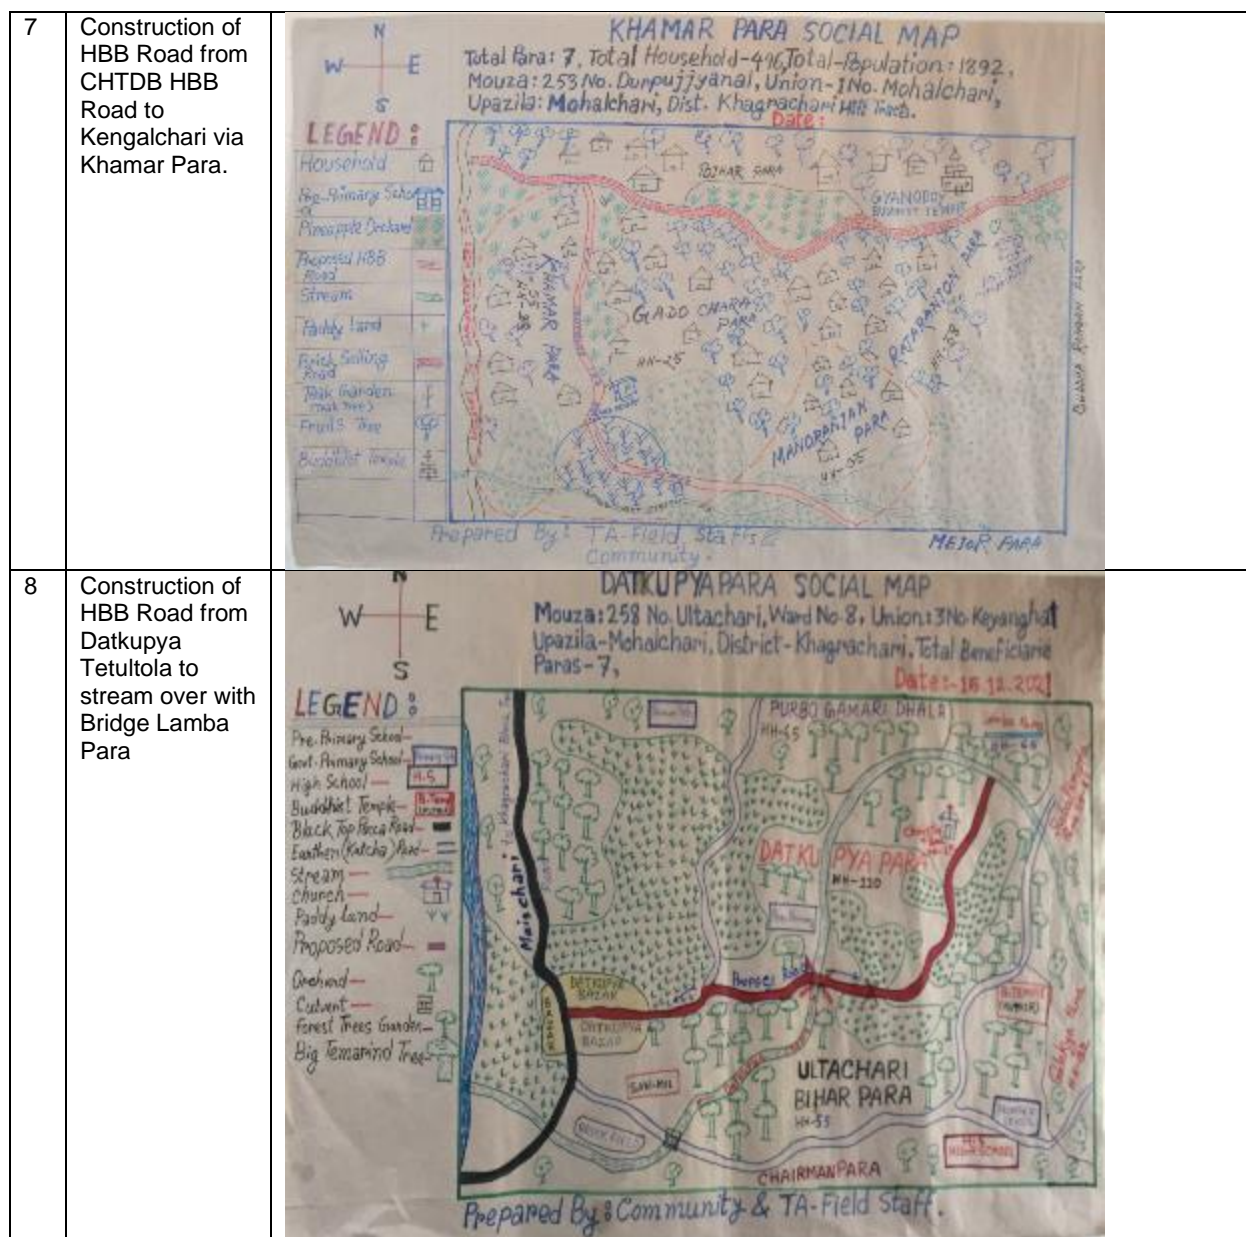 7
Construction of
HBB Road from
CHTDB HBB
Road to
Kengalchari via
Khamar Para.
KHAMAR PARA SOCIAL MAP
Total Para: 7, Total Household-496, Total-Population: 1892,
Mouza: 253 No. Durpujjyanal, Union-1 No. Mohalchari,
Upazila: Mohalchari, Dist. Khagrachari Hill Tracts.
Date:
N
W E
S
LEGEND:
Household
Pre-Primary School
Pineapple Orchard
Proposed HBB
Road
Stream
Paddy Land
Brick Soling
Road
Teak Garden
Fruits Tree
Buddhist Temple
BOIHAR PARA
GYANODOY
BUDDIST TEMPLE
KHAMAR PARA
GADO CHARA
PARA
HH-25
RAJARANJON PARA
MANORANJAN
PARA
Prepared By: TA-Field Staffs &
Community.
MEJOR PARA
8
Construction of
HBB Road from
Datkupya
Tetultola to
stream over with
Bridge Lamba
Para
DATKUPYAPARA SOCIAL MAP
Mouza: 258 No. Ultachari, Ward No. 8, Union: 3 No. Keyanghat
Upazila-Mohalchari, District-Khagrachari, Total Beneficiarie
Paras-7,
Date:-16.12.2021
N
W E
S
LEGEND:
Pre-Primary School-
Govt-Primary School-
High School- H.S
Buddhist Temple-
Black Top Pacca Road-
Earthen (Katcha) Road-
Stream-
Church-
Paddy Land-
Proposed Road-
Orchard-
Culvert-
Forest Trees Garden-
Big Temarind Tree-
PURBO GAMARI DHALA
Maischari
DATKUPYA PARA
HH-110
DATKUPYA
BAZAR
BAZAR
DATKUPYA
BAZAR
SAW-MIL
BRICK FIELD
ULTACHARI
BIHAR PARA
HH-55
CHAIRMANPARA
Prepared By: Community & TA-Field Staff.